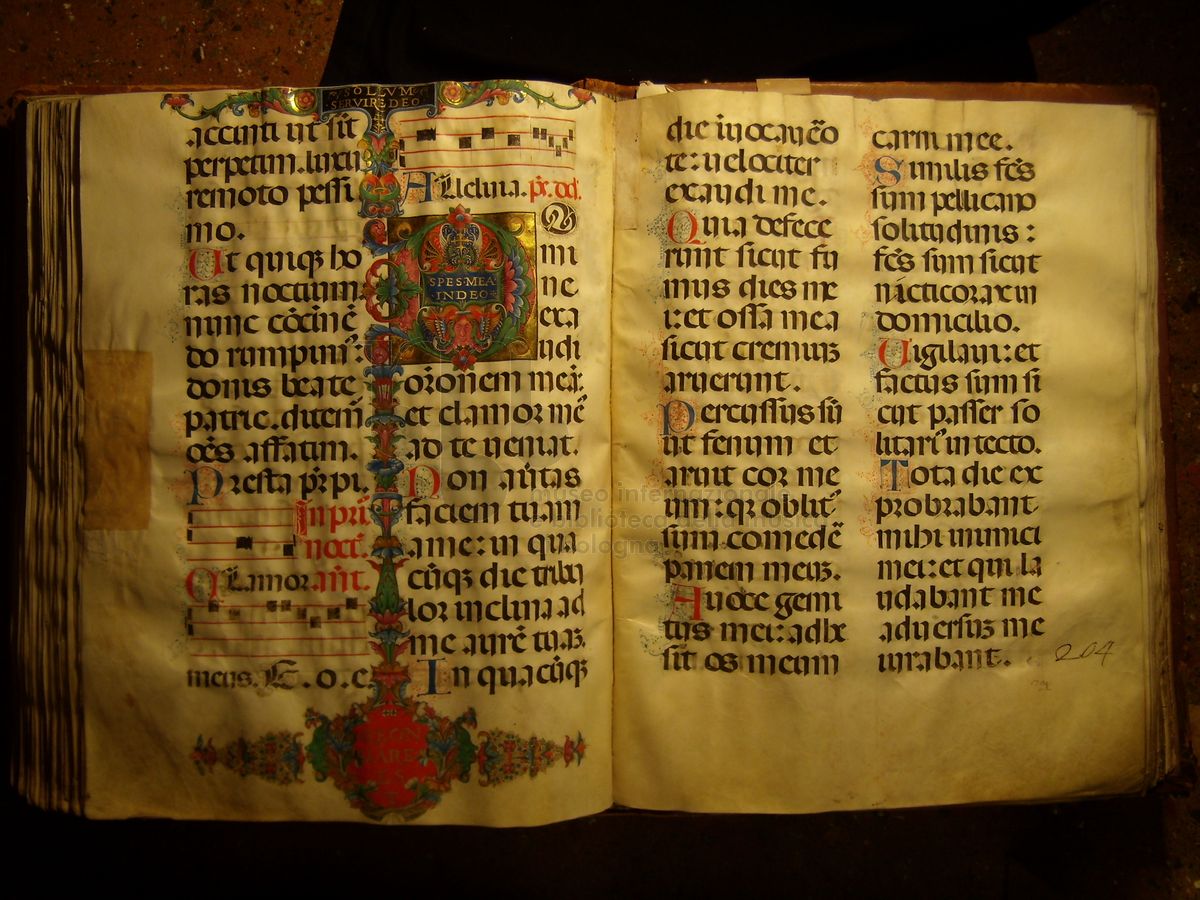 SOLLVM
SERVIRE DEO
accinti ut sit
perpetim. luxu
remoto pessi
mo.
Ut quiqꝫ ho
ras noctium
nunc cōcinē
do rumpimꝰ:
donis beate
patrie. ditemꝰ
oēs affatim.
Presta pr̄ pi.
In prīō
noct̄.
Clamor an̄t.
meus. E. o. e.
Alleluia. ps̄. dd̄.
SPES MEA
IN DEO
D
mi
ne
exa
udi
orōnem meā:
et clamor meꝰ
ad te ueniat.
Non aūtas
faciem tuam
a me: in qua
cūqꝫ die tribu
lor inclina ad
me aurē tuā.
In quacūqꝫ
die inocauēo
te: uelociter
exaudi me.
Quia defece
runt sicut fu
mus dies me
i: et ossa mea
sicut cremiuꝫ
aruerunt.
Percussus sū
ut fenum et
aruit cor me
um: qꝛ oblitꝰ
sum comedē
panem meuꝫ.
A uoce gemi
tus mei: adhe
sit os meum
carni mee.
Similis fcūs
sum pellicano
solitudinis:
fcūs sum sicut
nicticorax in
domicilio.
Uigilaui: et
factus sum si
cut passer so
litariꝰ in tecto.
Tota die ex
probrabant
mihi inimici
mei: et qui la
udabant me
aduersuꝫ me
iurabant.
204
museo internazionale
e biblioteca della musica
bologna